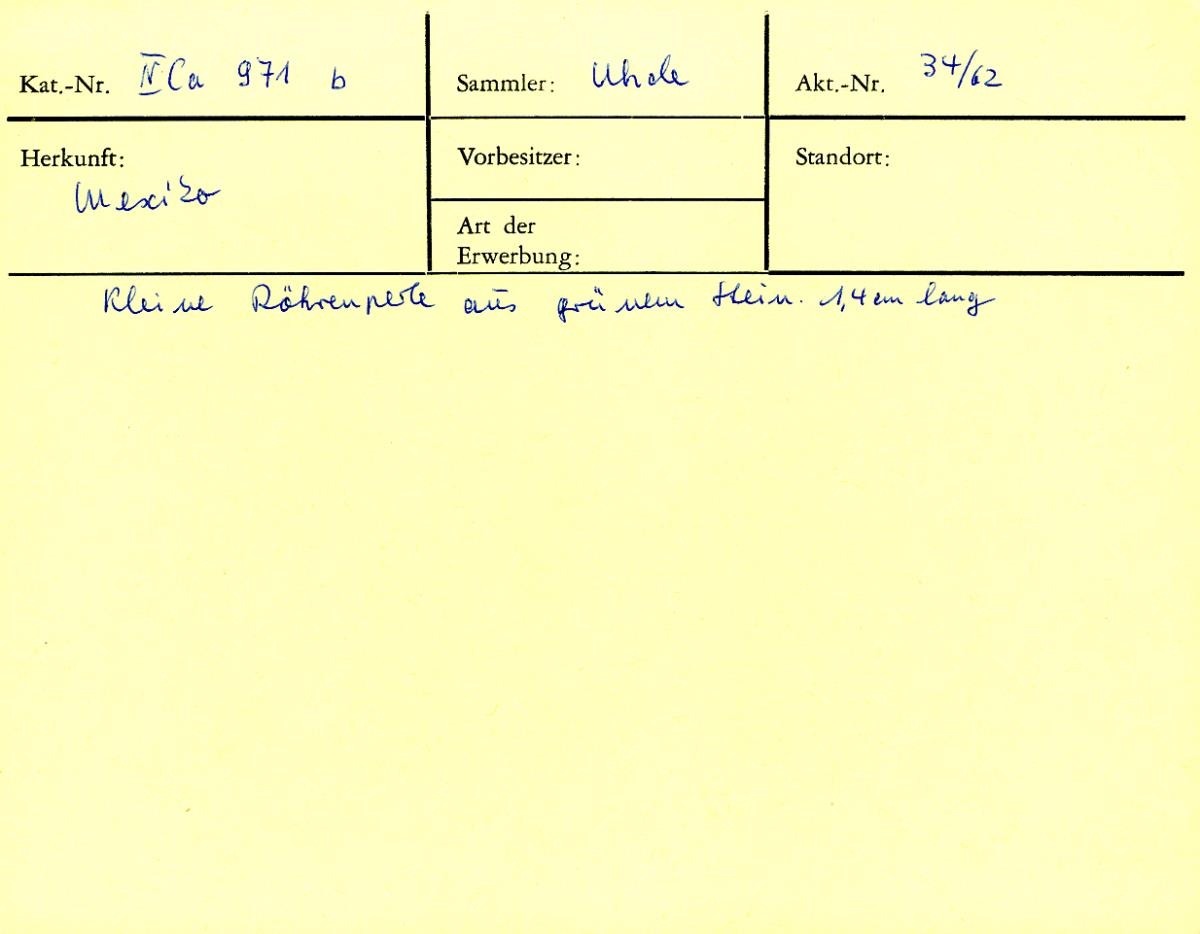 Kat.-Nr. IV Ca 971 b
Sammler: Uhde
Akt.-Nr. 34/62
Herkunft:
Mexiko
Vorbesitzer:
Art der
Erwerbung:
Standort:
Kleine Röhrenperle aus grünem Stein. 1,4 cm lang